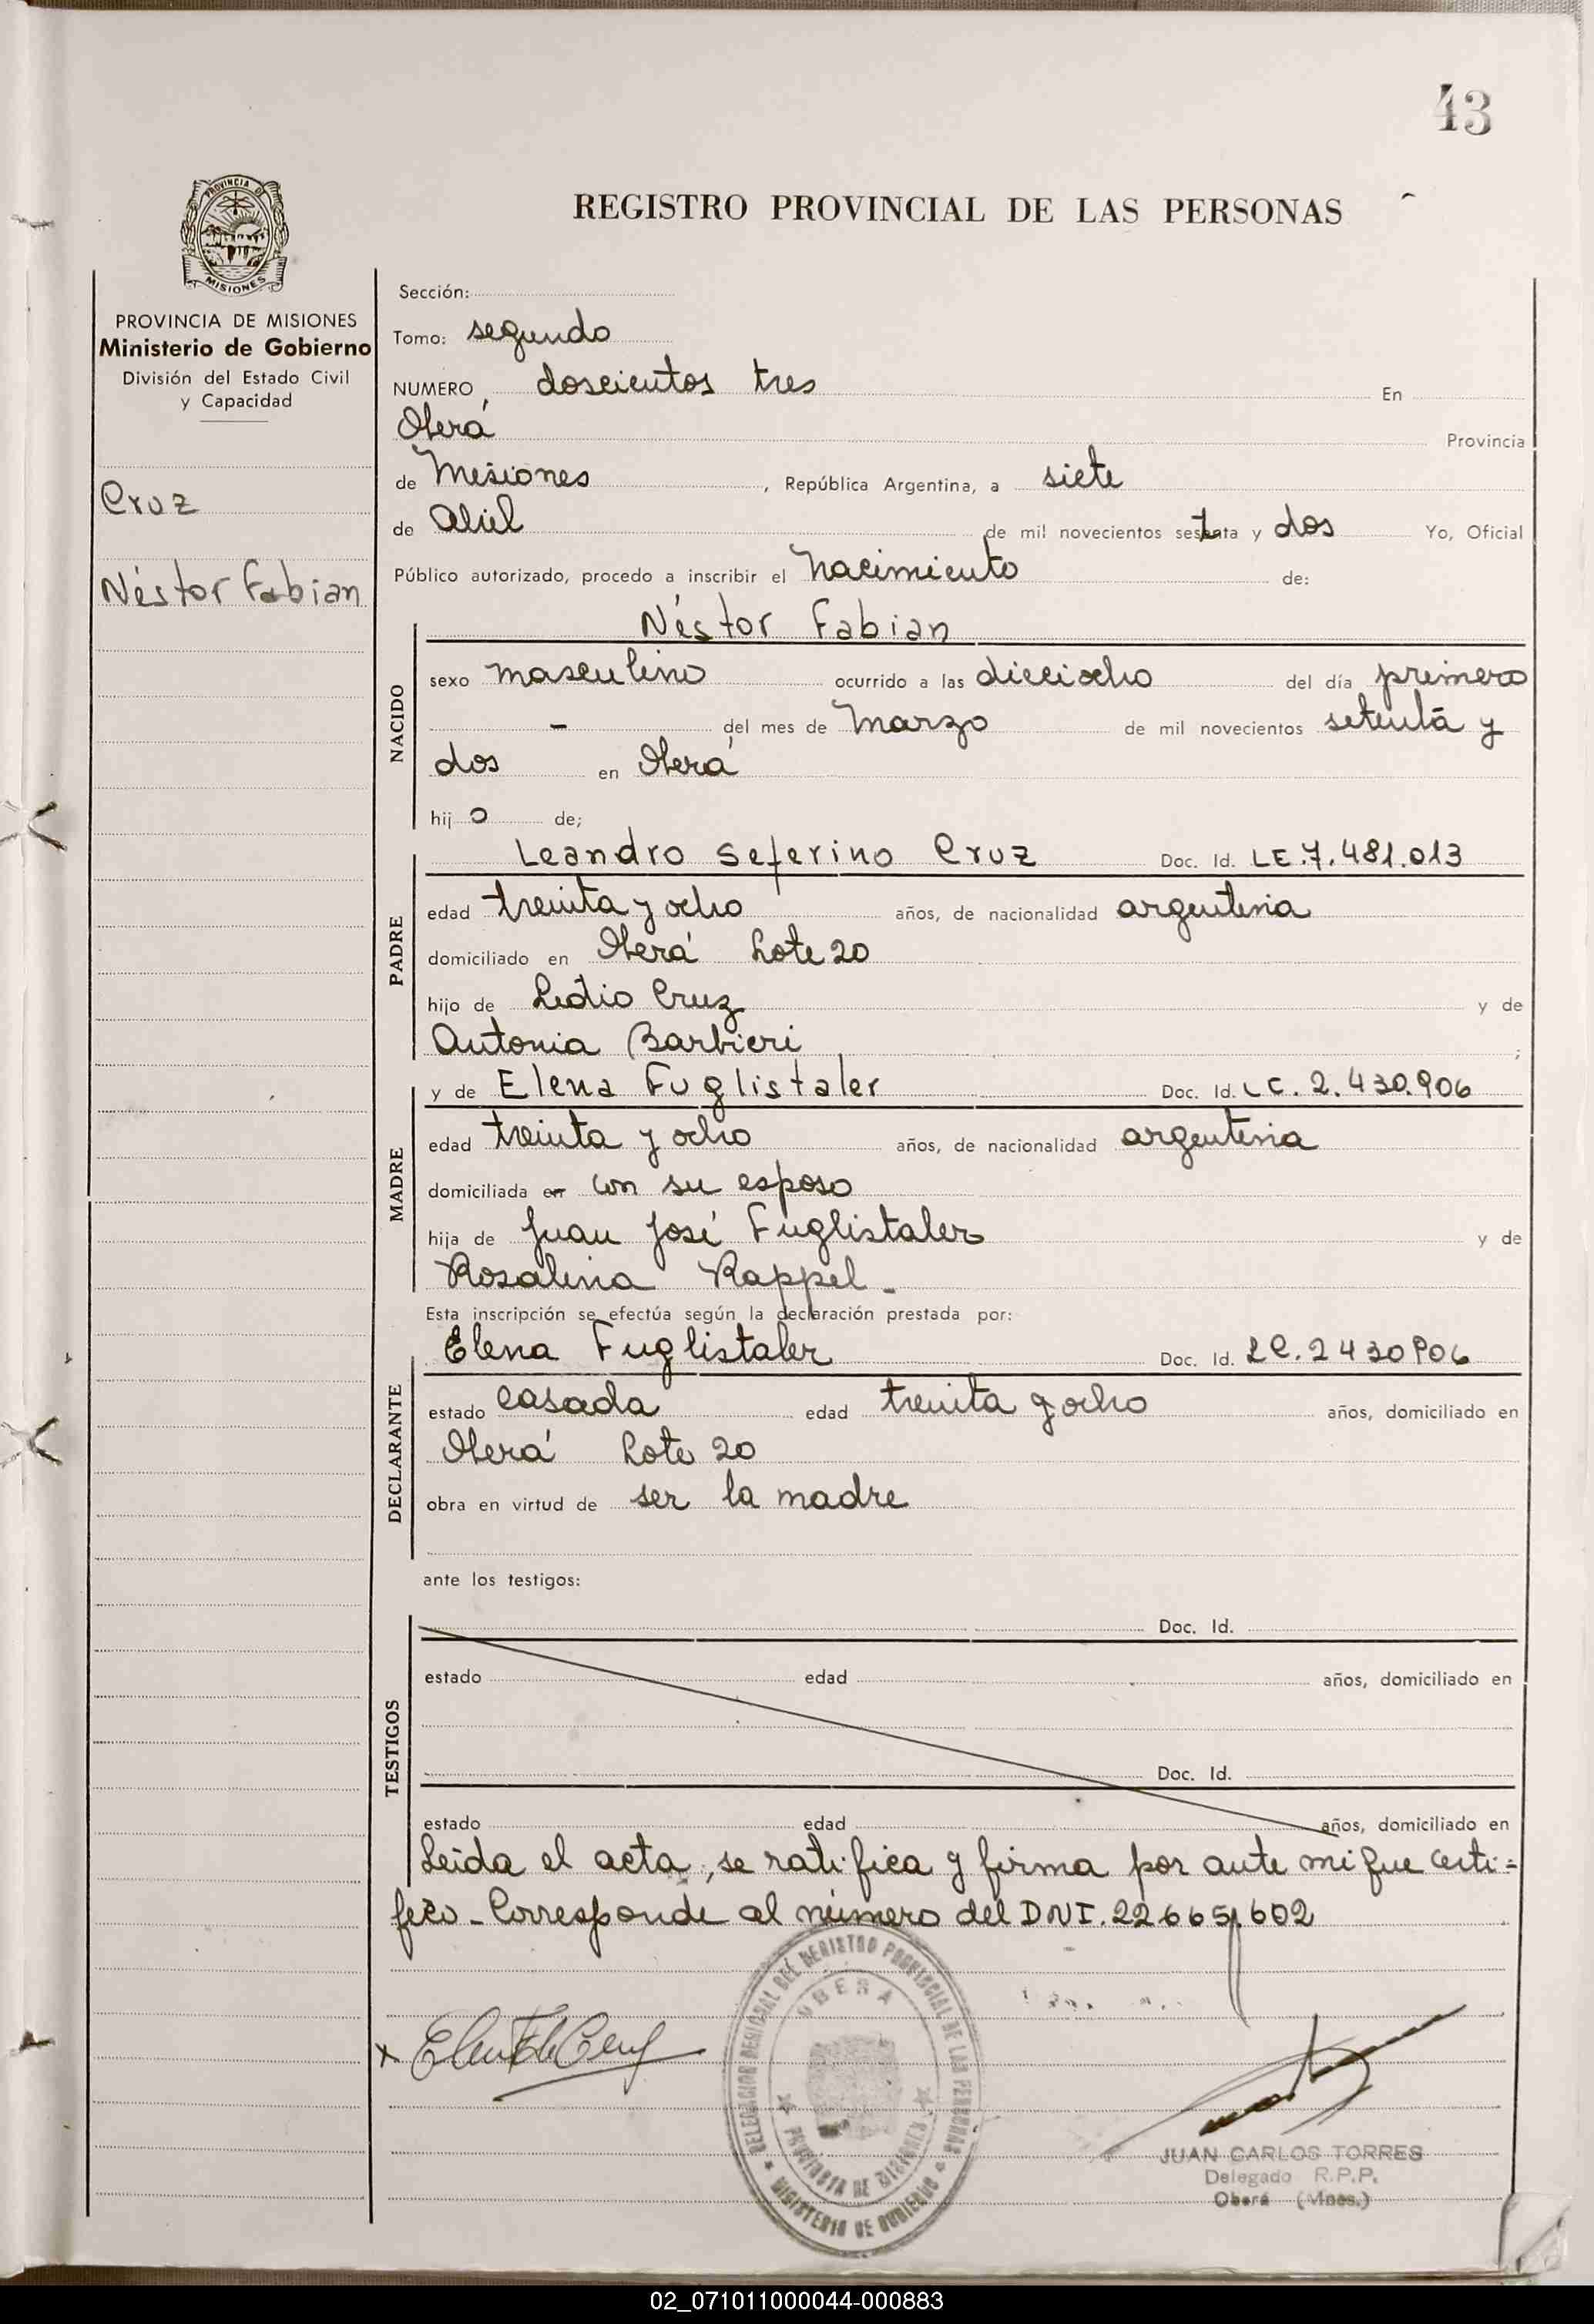 43
PROVINCIA DE
MISIONES
REGISTRO PROVINCIAL DE LAS PERSONAS
PROVINCIA DE MISIONES
Ministerio de Gobierno
División del Estado Civil
y Capacidad
Cruz
Néstor Fabian
Sección:
Tomo: segundo
NUMERO doscientos tres En
Oberá Provincia
de Misiones, República Argentina, a siete
de abril de mil novecientos setenta y dos Yo, Oficial
Público autorizado, procedo a inscribir el nacimiento de:
Néstor Fabian
NACIDO
sexo masculino ocurrido a las dieciocho del día primero
- del mes de Marzo de mil novecientos setenta y
dos en Oberá
hijo de;
Leandro Seferino Cruz Doc. Id. LE.7.481.013
PADRE
edad treinta y ocho años, de nacionalidad argentina
domiciliado en Oberá Lote 20
hijo de Lidio Cruz y de
Antonia Barbieri ;
y de Elena Fuglistaler Doc. Id. LC. 2.430.906
MADRE
edad treinta y ocho años, de nacionalidad argentina
domiciliada en con su esposo
hija de Juan José Fuglistaler y de
Rosalina Rappel -
Esta inscripción se efectúa según la declaración prestada por:
Elena Fuglistaler Doc. Id. LC. 2430906
DECLARANTE
estado casada edad treinta y ocho años, domiciliado en
Oberá Lote 20
obra en virtud de ser la madre
ante los testigos:
Doc. Id.
TESTIGOS
estado edad años, domiciliado en
Doc. Id.
estado edad años, domiciliado en
Leida el acta, se ratifica y firma por ante mi que certi=
fico - Corresponde al número del DNI. 22665602
DELEGACION REGIONAL DEL REGISTRO PROVINCIAL DE LAS PERSONAS
OBERA
PROVINCIA DE MISIONES
MINISTERIO DE GOBIERNO
JUAN CARLOS TORRES
Delegado R.P.P.
Oberá (Mnes.)
02_071011000044-000883